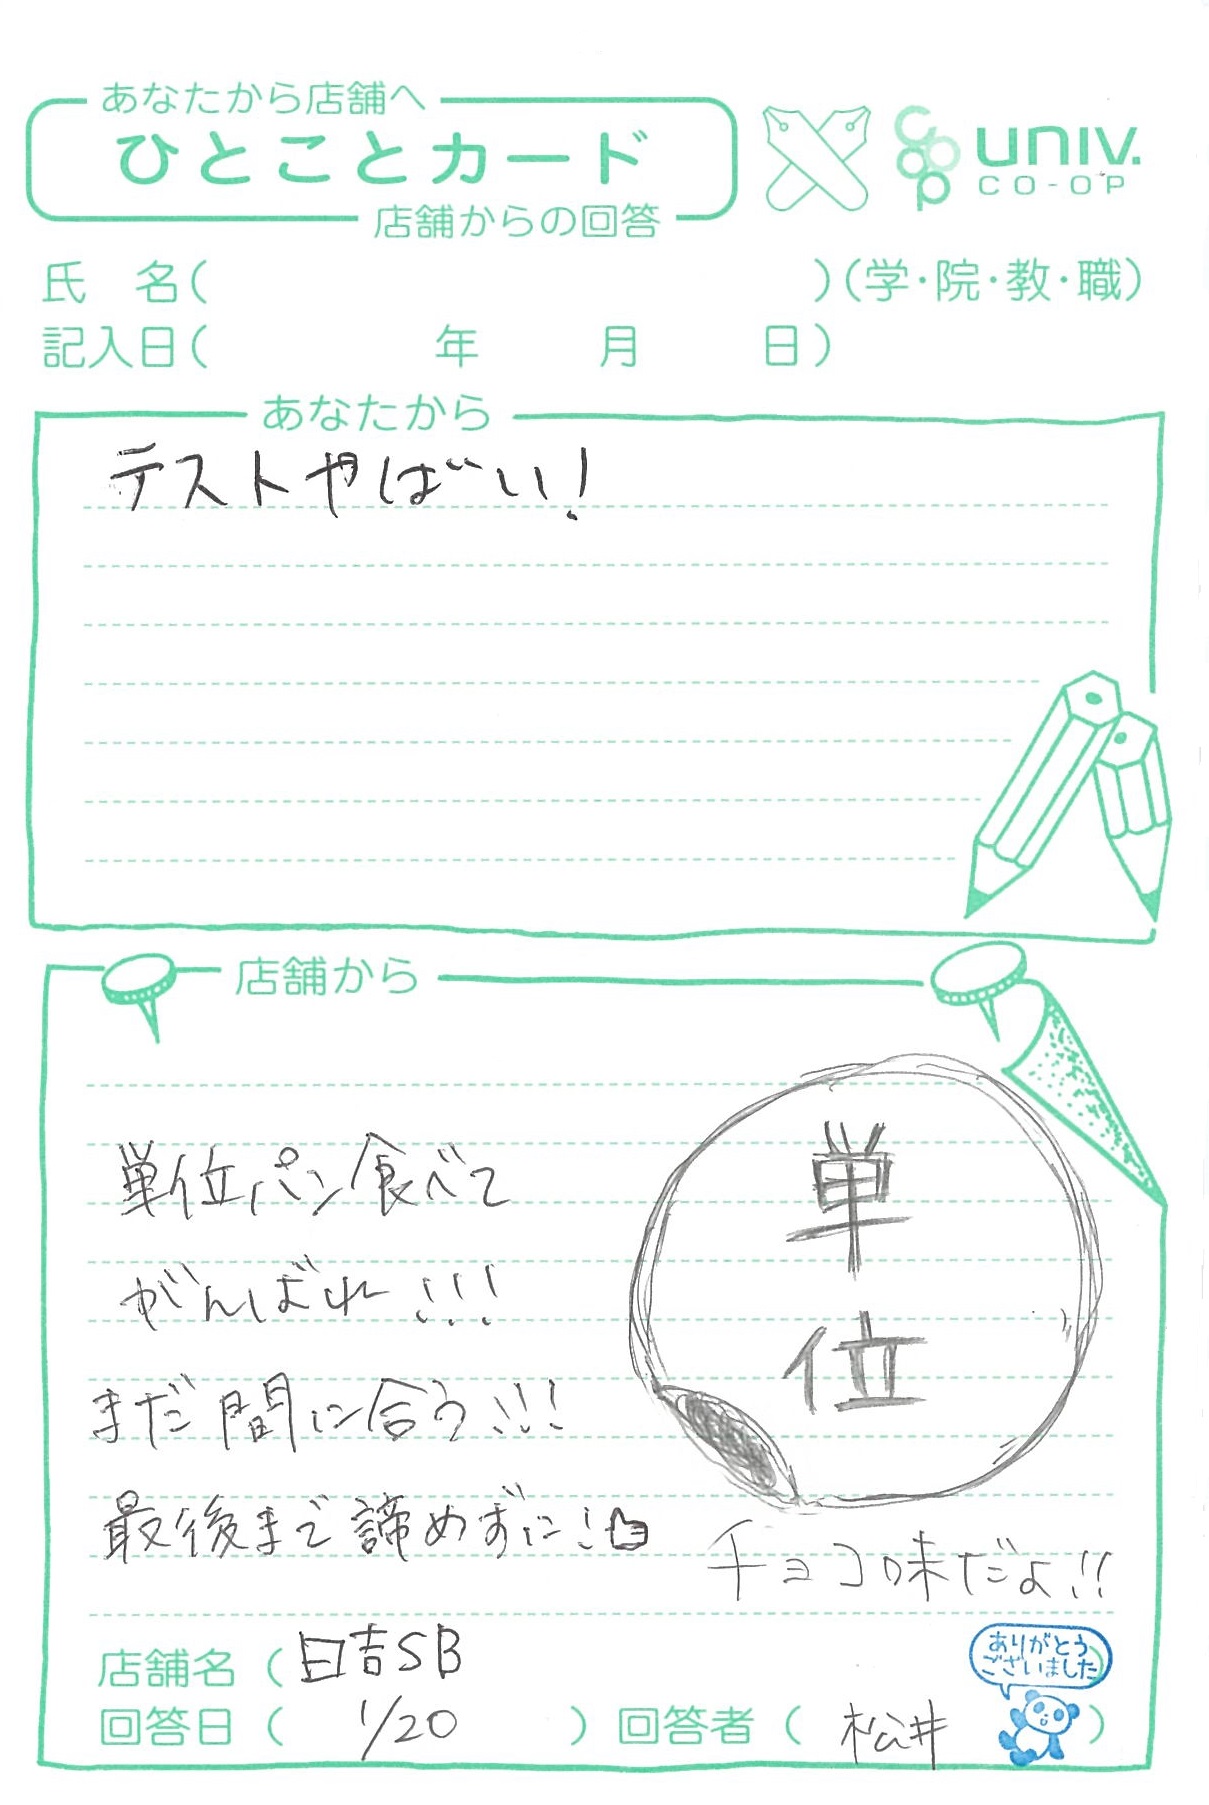 あなたから店舗へ
ひとことカード
店舗からの回答
coop univ.
CO-OP
氏 名( )(学・院・教・職)
記入日( 年 月 日)
あなたから
テストやばい!
店舗から
単位パン食べて
がんばれ!!!
まだ間に合う!!!
最後まで諦めずに!
単
位
チョコ味だよ!!
店舗名(日吉SB)
ありがとう
ございました
回答日( 1/20 ) 回答者( 松井 )